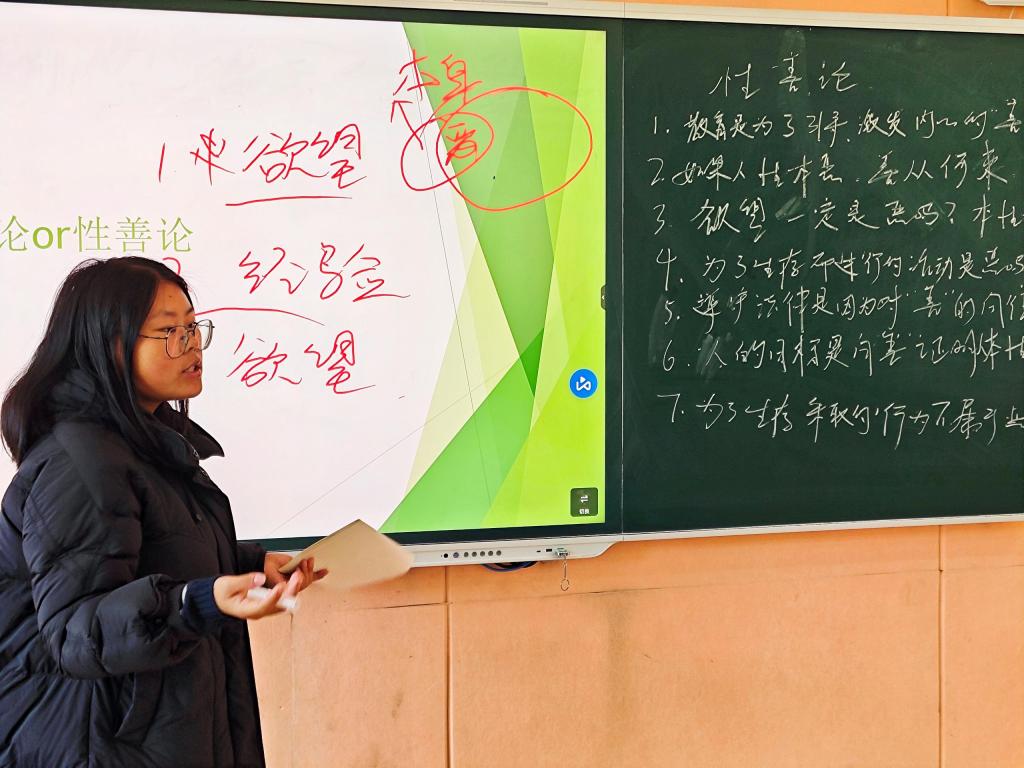 本身
恶
1. 求欲望
论or性善论
2 经验
欲望
切换
性善论
1. 教育是为了引导、激发内心的"善
2. 如果人性本恶，善从何来
3. 欲望一定是恶吗？本性
4. 为了生存而进行的活动是恶吗
5. 遵守法律是因为对"善"的向往
6. "人"的目标是向善"证明体性
7. 为了生存采取的行为不属于